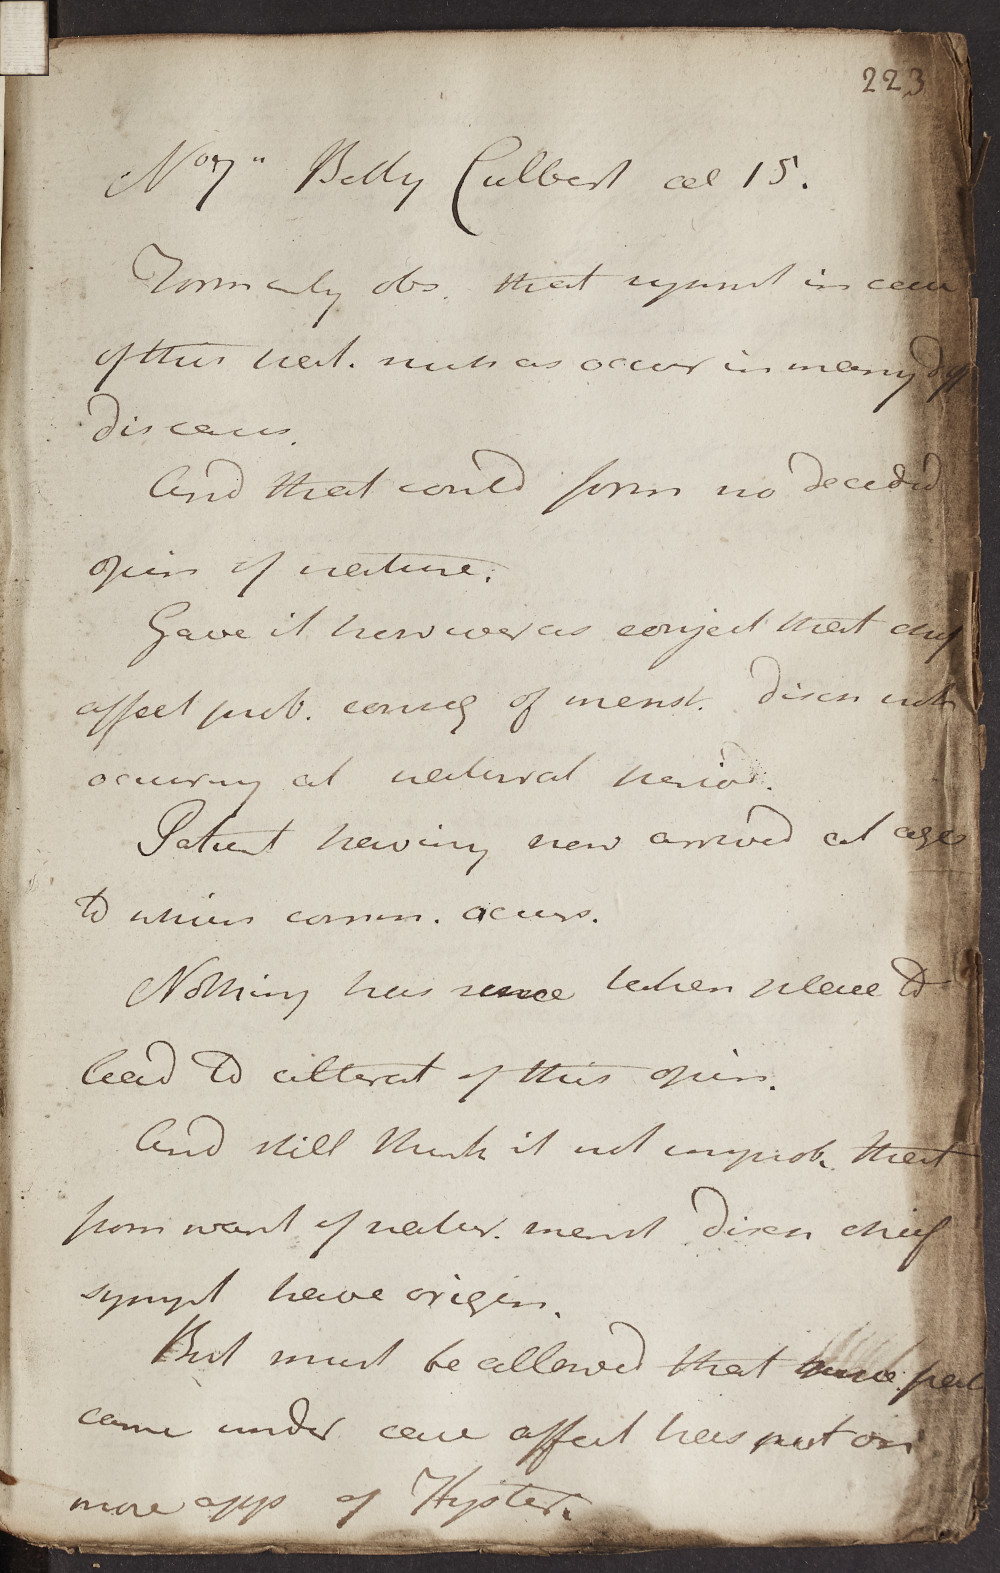 223
No 7" Betty Culbert aet 15.
Formerly obs. that sympt in case
of this pat. such as occur in many diff
diseases.
And that could form no decided
opin of nature.
Gave it however as conject that chief
affect prob. conseq of menst. disch not
occurring at natural period.
Patient having now arrived at age
to which comm. occurs.
Nothing has since taken place to
lead to alterat of this opin.
And still think it not improb. that
from want of natur. menst disch chief
sympt have origin.
But must be allowed that since pat
came under care affect has put on
more app of Hyster.